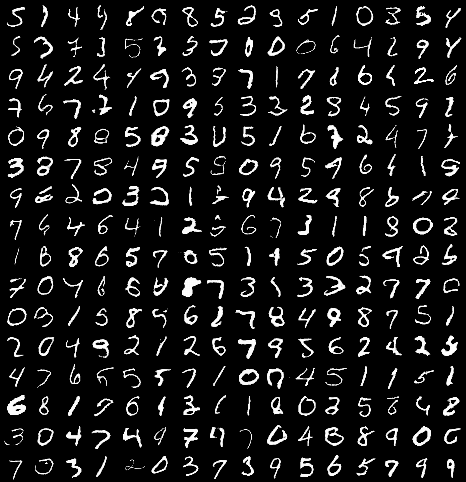 5 1 4 4 8 9 8 5 2 9 5 1 0 3 5 4
5 3 7 3 5 3 5 7 0 0 0 6 4 2 9 4
9 4 2 4 4 9 3 8 7 1 7 8 6 4 2 6
7 6 7 2 1 0 9 5 3 3 2 8 4 5 9 2
0 9 8 8 5 8 3 0 5 1 6 7 2 4 7 7
3 8 7 8 4 9 5 5 0 9 5 9 6 4 1 9
9 6 2 0 3 2 1 9 4 2 9 8 6 7 4
7 6 4 6 4 1 2 5 6 7 3 1 1 8 0 8
1 8 8 6 5 7 0 5 1 4 5 0 5 9 2 6
7 0 4 6 6 0 8 7 3 1 3 3 2 7 7 0
0 3 1 5 8 9 6 2 7 8 4 9 8 7 5 1
2 0 4 9 2 1 2 6 7 9 5 6 2 4 2 5
4 7 6 5 5 5 7 1 0 0 4 5 1 1 5 1
6 8 1 9 6 1 3 6 1 8 0 2 5 8 4 8
3 0 4 7 4 9 7 4 7 0 4 8 8 9 0 0
7 0 3 1 2 0 3 7 3 9 5 6 5 7 9 9